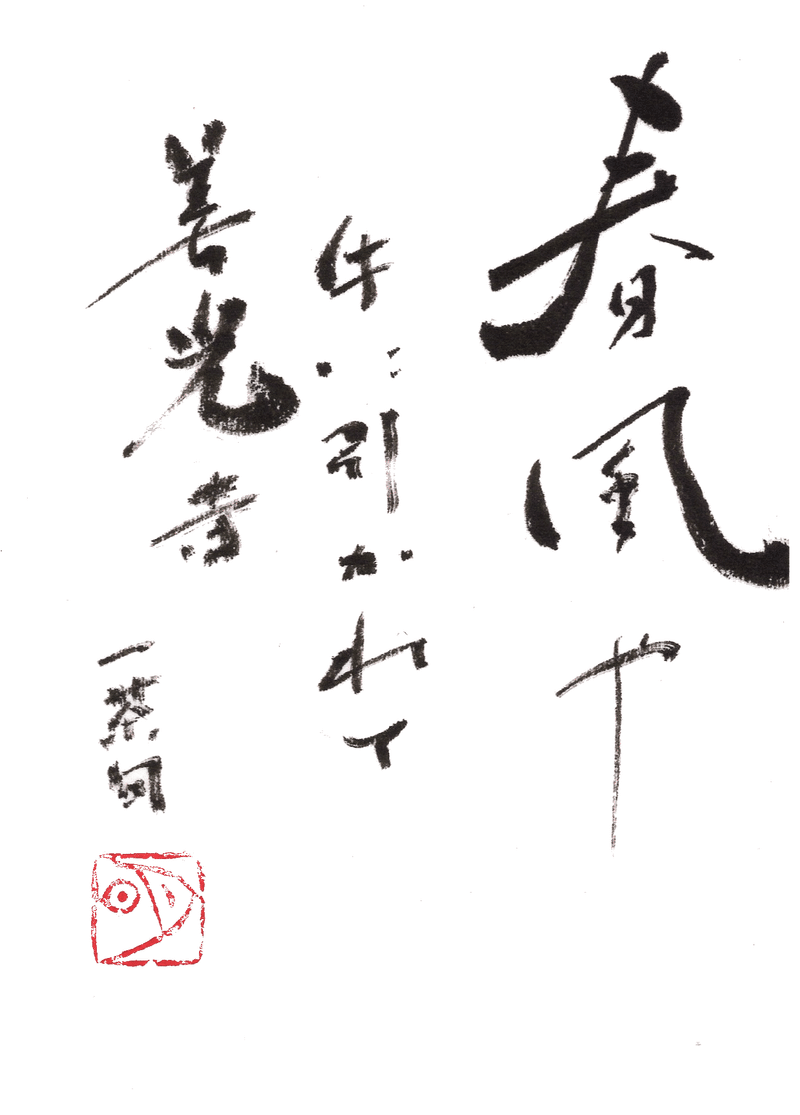 春風や
牛に引かれて
善光寺
一茶句